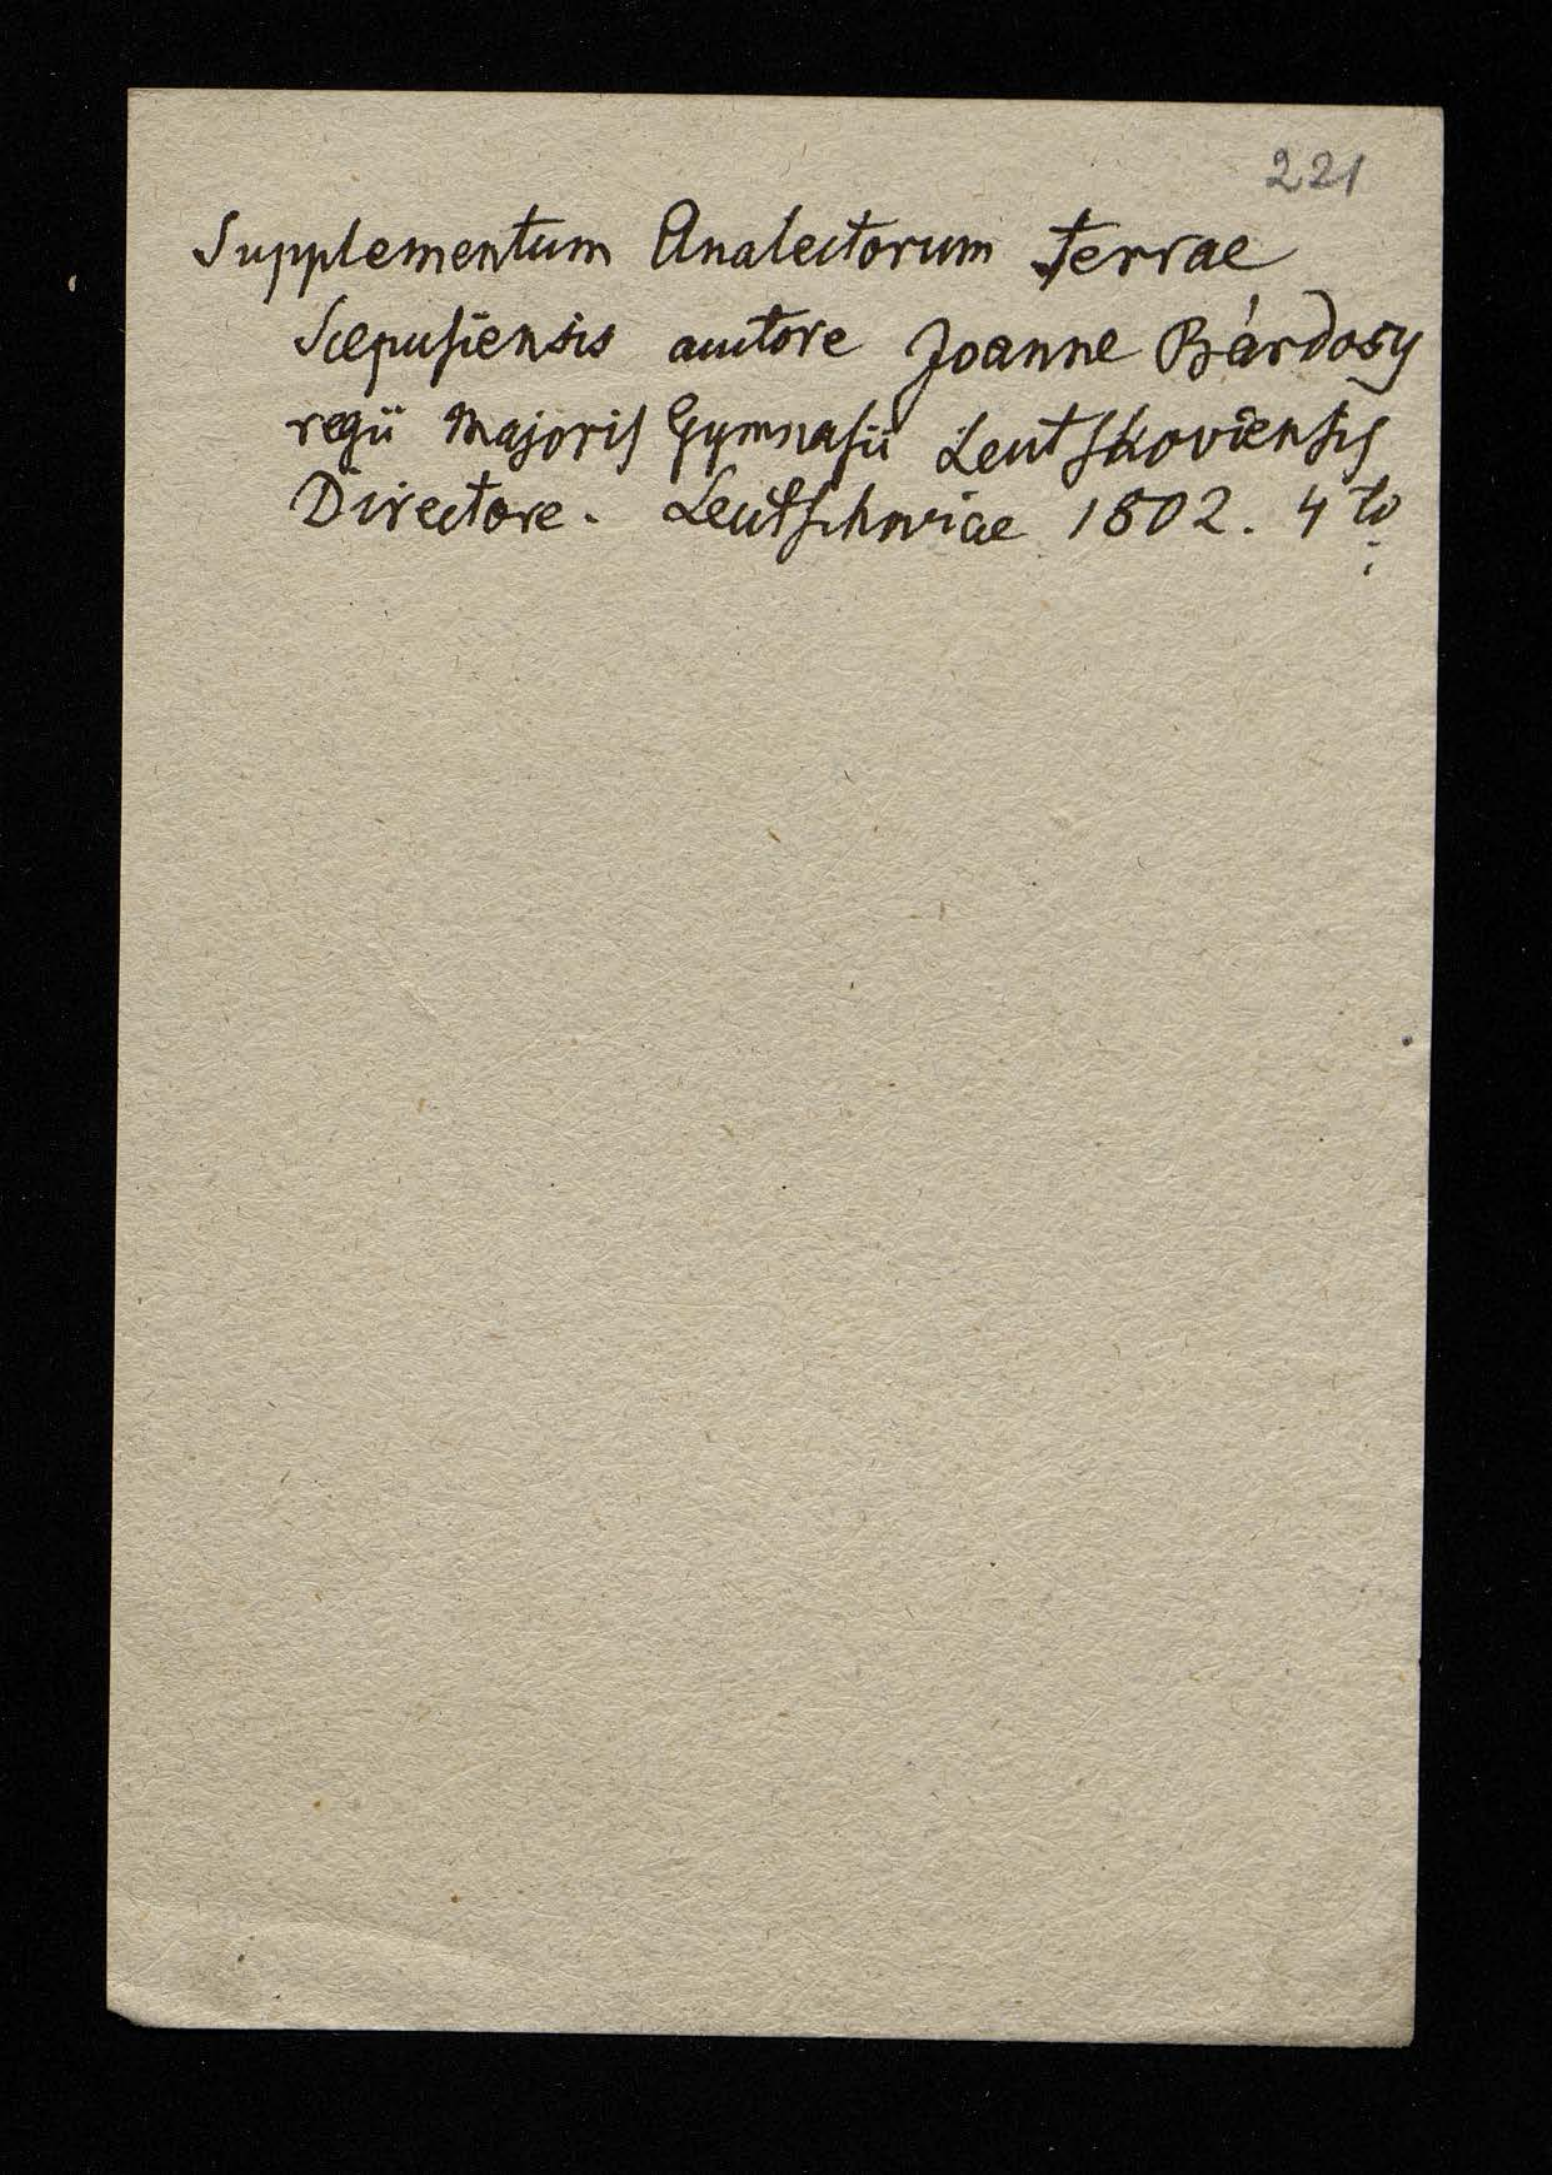 221
Supplementum Analectorum terrae
Scepusiensis auctore Joanne Bárdosy
regii Majoris Gymnasii Leutschoviensis
Directore. Leutschoviae 1802. 4to